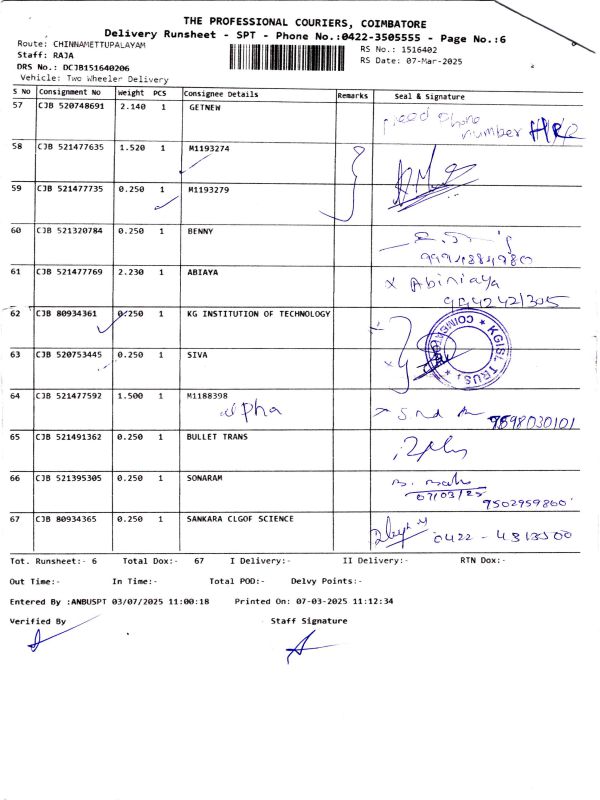 THE PROFESSIONAL COURIERS, COIMBATORE
Delivery Runsheet - SPT - Phone No.:0422-3505555 - Page No.:6
Route: CHINNAMETTUPALAYAM
RS No.: 1516402
Staff: RAJA
RS Date: 07-Mar-2025
DRS No.: DCJB151640206
Vehicle: Two Wheeler Delivery
S No Consignment No Weight PCS Consignee Details Remarks Seal & Signature
57 CJB 520748691 2.140 1 GETNEW
need phone
number
58 CJB 521477635 1.520 1 M1193274
59 CJB 521477735 0.250 1 M1193279
60 CJB 521320784 0.250 1 BENNY
61 CJB 521477769 2.230 1 ABIAYA
x Abiniaya
9942421305
62 CJB 80934361 0.250 1 KG INSTITUTION OF TECHNOLOGY
KGISL TRUST * COIMBATORE *
63 CJB 520753445 0.250 1 SIVA
64 CJB 521477592 1.500 1 M1188398
alpha
9598030101
65 CJB 521491362 0.250 1 BULLET TRANS
66 CJB 521395305 0.250 1 SONARAM
07/03/25
9502959860
67 CJB 80934365 0.250 1 SANKARA CLGOF SCIENCE
0422 - 4313500
Tot. Runsheet:- 6 Total Dox:- 67 I Delivery:- II Delivery:- RTN Dox:-
Out Time:- In Time:- Total POD:- Delvy Points:-
Entered By :ANBUSPT 03/07/2025 11:00:18 Printed On: 07-03-2025 11:12:34
Verified By Staff Signature